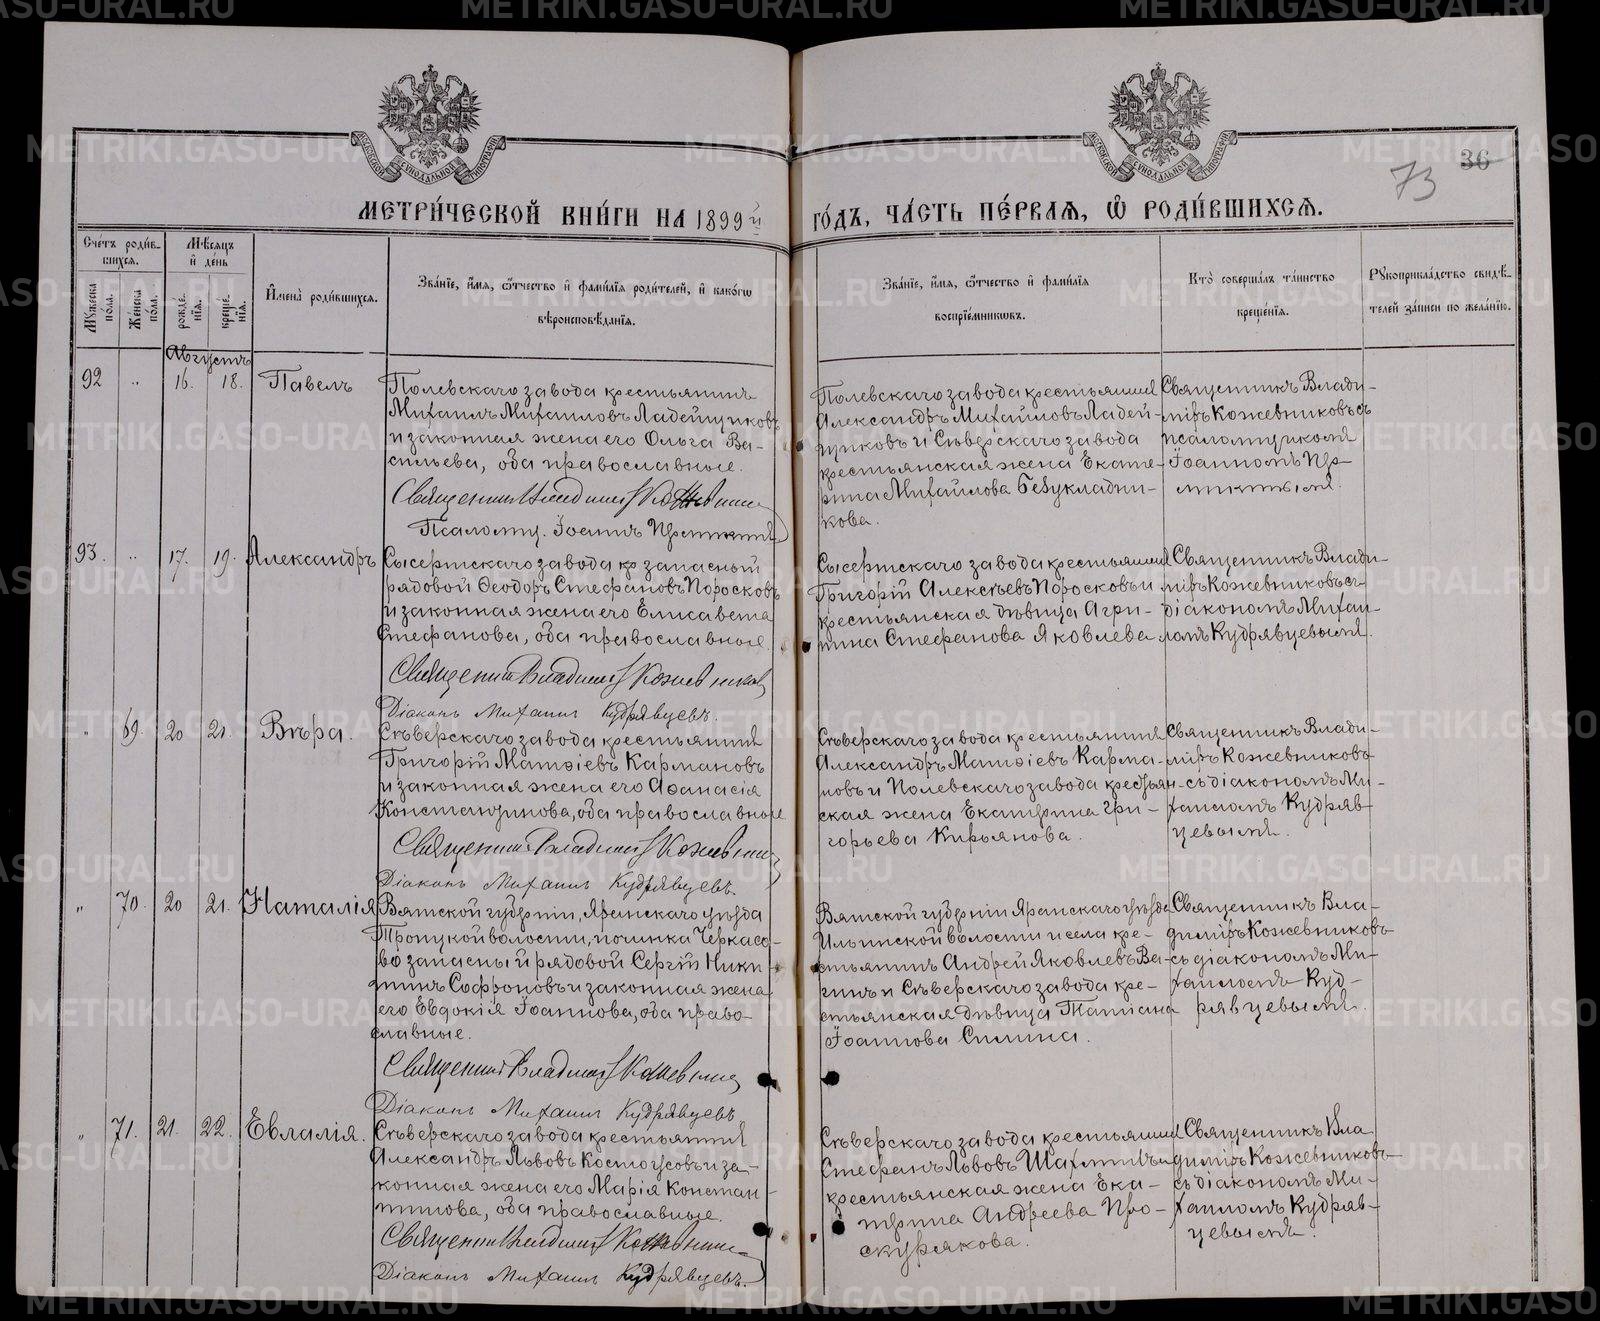 МЕТРИ́ЧЕСКОЙ КНИ́ГИ НА 1899й ГО́ДЪ, ЧА́СТЬ ПЕ́РВАЯ, Ѽ РОДИ́ВШИХСѦ.
73 36
Сче́тъ роди́в-
шихсѧ.
Мꙋ́жеска по́ла.
Же́нска по́ла.
Мѣ́сѧцъ и҆ де́нь
рожде́нїѧ.
креще́нїѧ.
И҆мена̀ роди́вшихсѧ.
Зва́нїе, и҆́мѧ, ѻ҆́тчество и҆ фами́лїѧ роди́телей, и҆ како́гѡ
вѣроисповѣ́данїѧ.
Зва́нїе, и҆́мѧ, ѻ҆́тчество и҆ фами́лїѧ
воспрїе́мникѡвъ.
Кто̀ соверша́лъ та́инство
креще́нїѧ.
Рꙋкоприкла́дство свидѣ́-
телей за́писи по жела́нїю.
Августъ
92 " 16. 18. Павелъ
Полевскаго завода крестьянинъ
Михаилъ Михаиловъ Ладейщиковъ
и законная жена его Ольга Ва-
сильева, оба православные.
Священникъ Владимір Кожевников
Псаломщ. Іоаннъ
Полевскаго завода крестьянинъ
Александръ Михайловъ Ладей-
щиковъ и Сѣверскаго завода
крестьянская жена Екате-
рина Михайлова Безукладни-
кова.
Священникъ Влади-
міръ Кожевниковъ съ
псаломщикомъ
Іоанномъ
93. " 17. 19. Александръ
Сысертскаго завода кр запасный
рядовой Ѳеодоръ Стефановъ Поросковъ
и законная жена его Елисавета
Стефанова, оба православные.
Священникъ Владимір Кожевников
Діаконъ Михаилъ Кудрявцевъ.
Сысертскаго завода крестьянинъ
Григорій Алексѣевъ Поросковъ и
крестьянская дѣвица Агри-
пина Стефанова Яковлева
Священникъ Влади-
міръ Кожевниковъ съ
діакономъ Михаи-
ломъ Кудрявцевымъ.
" 69. 20 21. Вѣра.
Сѣверскаго завода крестьянинъ
Григорій Матѳіевъ Кармановъ
и законная жена его Аѳанасія
Константинова, оба православные
Священникъ Владимір Кожевников
Діаконъ Михаилъ Кудрявцевъ.
Сѣверскаго завода крестьянинъ
Александръ Матѳіевъ Карма-
новъ и Полевскаго завода крестьян-
ская жена Екатерина Гри-
горьева Кирьянова.
Священникъ Влади-
міръ Кожевниковъ
съ діакономъ Ми-
хаиломъ Кудряв-
цевымъ.
" 70. 20 21. Наталія
Вятской губерніи, Яранскаго уѣзда
Троицкой волости, починка Черкасо-
во запасный рядовой Сергій Ники-
тинъ Софроновъ и законная жена
его Евдокія Іоаннова, оба право-
славные.
Священникъ Владимір Кожевников
Діаконъ Михаилъ Кудрявцевъ.
Вятской губерніи Яранскаго уѣзда
Ильинской волости и села кре-
стьянинъ Андрей Яковлевъ Ва-
гинъ и Сѣверскаго завода кре-
стьянская дѣвица Татіана
Іоаннова Силина.
Священникъ Вла-
диміръ Кожевниковъ
съ діакономъ Ми-
хаиломъ Куд-
рявцевымъ.
" 71. 21. 22. Евлалія.
Сѣверскаго завода крестьянинъ
Александръ Львовъ Костоусовъ и за-
конная жена его Марія Констан-
тинова, оба православные.
Священникъ Владимір Кожевников
Діаконъ Михаилъ Кудрявцевъ.
Сѣверскаго завода крестьянинъ
Стефанъ Львовъ Шахминъ и
крестьянская жена Ека-
терина Андреева Про-
скурякова.
Священникъ Вла
диміръ Кожевниковъ
съ діакономъ Ми-
хаиломъ Кудряв-
цевымъ.
METRIKI.GASO-URAL.RU